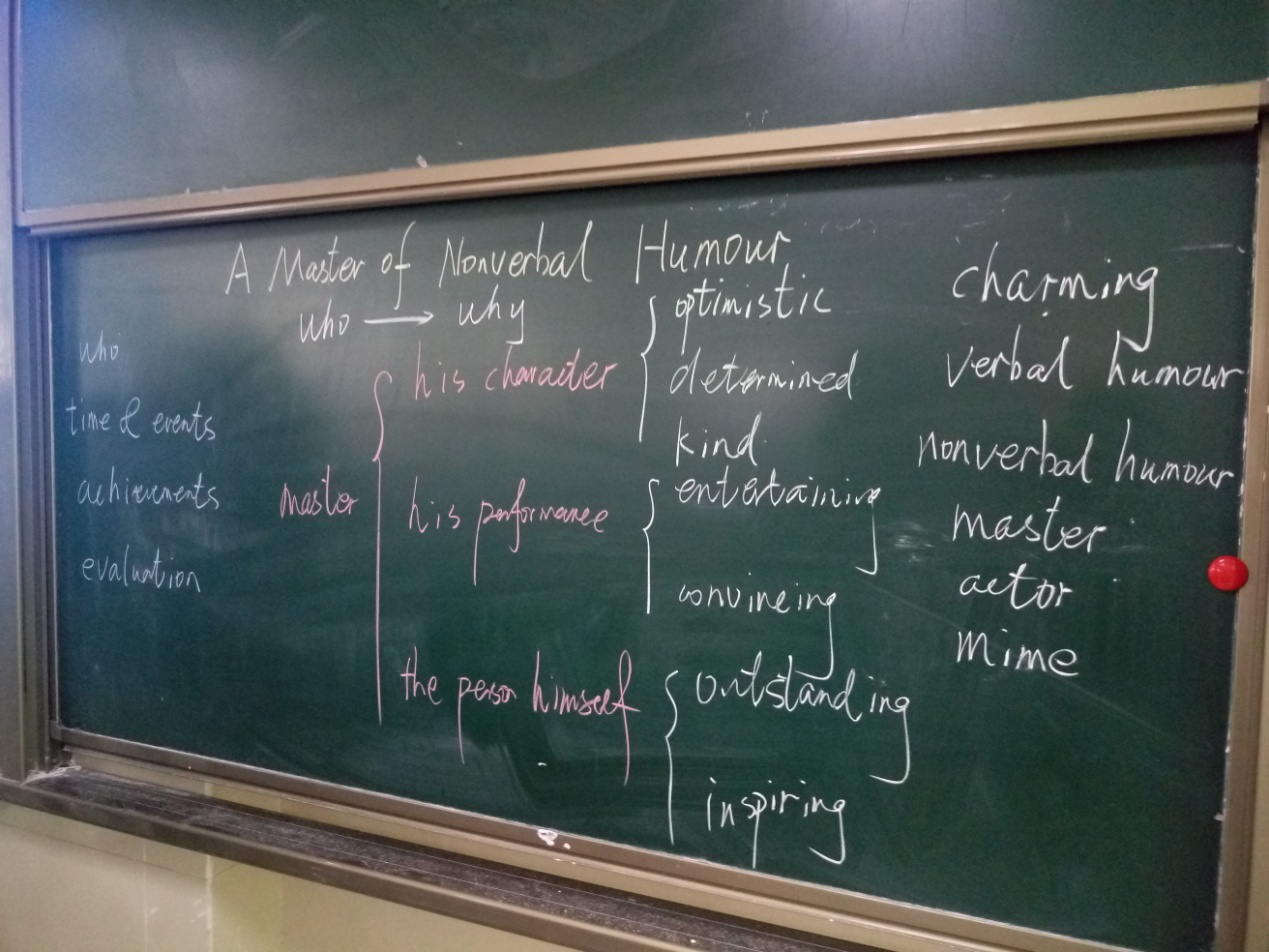 A Master of Nonverbal Humour
who → why
who
time & events
achievements
evaluation
master
his character
optimistic
determined
kind
his performance
entertaining
convincing
the person himself
outstanding
inspiring
charming
verbal humour
nonverbal humour
master
actor
mime